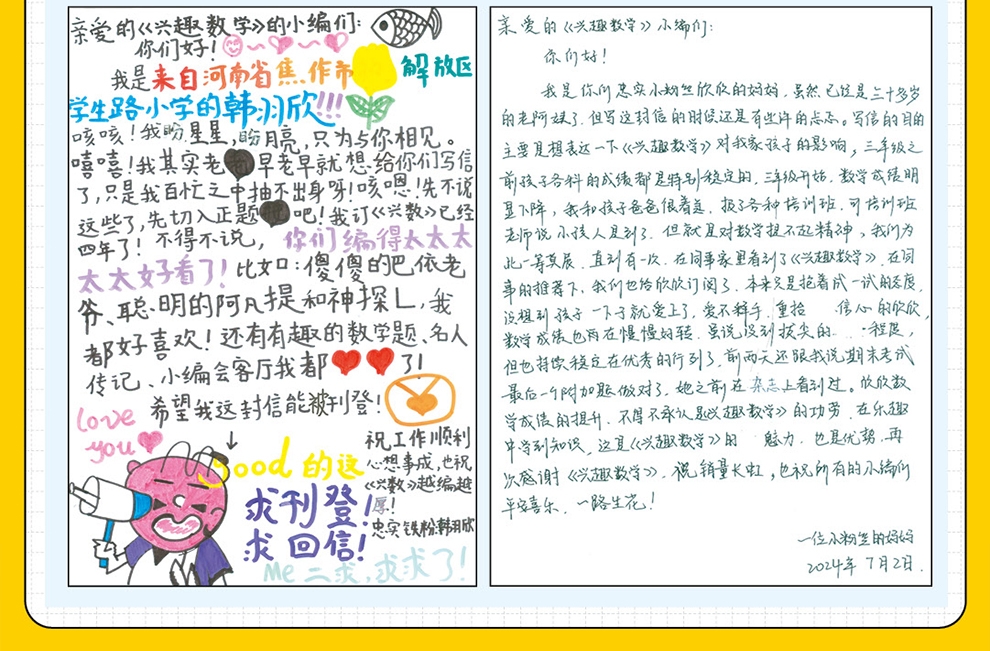 亲爱的《兴趣数学》的小编们:
你们好!
我是来自河南省焦作市解放区
学生路小学的韩羽欣!!!
咳咳!我盼星星,盼月亮,只为与你相见。
嘻嘻!我其实老早老早就想给你们写信
了,只是我百忙之中抽不出身呀!咳嗯!先不说
这些了,先切入正题吧!我订《兴数》已经
四年了!不得不说,你们编得太太太
太太好看了!比如:傻傻的巴依老
爷、聪明的阿凡提和神探L,我
都好喜欢!还有有趣的数学题、名人
传记、小编会客厅我都❤❤了!
希望我这封信能被刊登!
love
you
Good的这
求刊登!
求回信!
Me二求,求求了!
祝工作顺利
心想事成,也祝
《兴数》越编越
厚!
忠实铁粉韩羽欣
亲爱的《兴趣数学》小编们:
你们好!
我是你们忠实小粉丝欣欣的妈妈,虽然已经是三十多岁
的老阿姨了,但写这封信的时候还是有些许的忐忑。写信的目的
主要是想表达一下《兴趣数学》对我家孩子的影响,三年级之
前孩子各科的成绩都是特别稳定的,三年级开始,数学成绩明
显下降,我和孩子爸爸很着急,报了各种培训班,可培训班
老师说小孩人是到了,但就是对数学提不起精神,我们为
此一筹莫展,直到有一次,在同事家里看到了《兴趣数学》,在同
事的推荐下,我们也给欣欣订阅了,本来只是抱着试一试的态度,
没想到孩子一下子就爱上了,爱不释手,重拾 信心的欣欣,
数学成绩也再在慢慢的转,虽说没到拔尖的 程度,
但也持续稳定在优秀的行列了,前两天还跟我说期末考试
最后一个附加题做对了,她之前在杂志上看到过。欣欣数
学成绩的提升,不得不承认是《兴趣数学》的功劳,在乐趣
中学到知识,这是《兴趣数学》的 魅力,也是优势,再
次感谢《兴趣数学》,祝销量长虹,也祝所有的小编们
平安喜乐,一路生花!
一位小粉丝的妈妈
2024年7月2日.